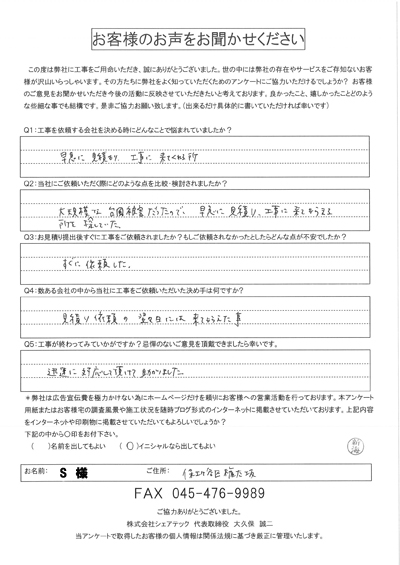 お客様のお声をお聞かせください
この度は弊社に工事をご用命いただき、誠にありがとうございました。世の中には弊社の存在やサービスをご存知ないお客様が沢山いらっしゃいます。その方たちに弊社をよく知っていただくためのアンケートにご協力いただけるでしょうか?　お客様のご意見をお聞かせいただき今後の活動に反映させていただきたいと考えております。良かったこと、嬉しかったことどのような些細な事でも結構です、是非ご協力お願い致します。(出来るだけ具体的に書いていただければ幸いです)
Q1:工事を依頼する会社を決める時にどんなことで悩まれていましたか?
早急に見積り、工事に来てくれる所
Q2:当社にご依頼いただく際にどのような点を比較・検討されましたか?
大規模な台風被害だったので、早急に見積り、工事に来てもらえる
所を探していた。
Q3:お見積り提出後すぐに工事をご依頼されましたか?もしご依頼されなかったとしたらどんな点が不安でしたか?
すぐに依頼した。
Q4:数ある会社の中から当社に工事をご依頼いただいた決め手は何ですか?
見積り依頼の翌々日には来てもらえた事
Q5:工事が終わってみていかがですか?忌憚のないご意見を頂戴できましたら幸いです。
迅速に対応して頂けて助かりました。
*弊社は広告宣伝費を極力かけない為にホームページだけを頼りにお客様への営業活動を行っております。本アンケート
用紙またはお客様宅の調査風景や施工状況を随時ブログ形式のインターネットに掲載させていただいております。上記内容
をインターネットや印刷物に掲載させていただいてもよろしいでしょうか?
下記の中から〇印をお付下さい。
(　)名前を出してもよい　(〇)イニシャルなら出してもよい
お名前: S 様　ご住所: 保土ヶ谷区権太坂
FAX 045-476-9989
ご協力ありがとうございました。
株式会社シェアテック 代表取締役 大久保 誠二
当アンケートで取得したお客様の個人情報は関係法規に基づき厳正に管理いたします。